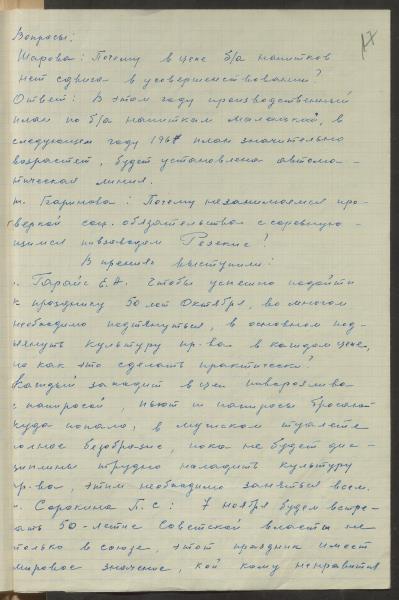 17
Вопросы:
Шарова: Почему в цехе б/а напитков
нет сдвига в усовершенствовании?
Ответ: В этом году производственный
план по б/а напиткам маленький, в
следующем году 1967 план значительно
возрастет, будет установлена автома-
тическая линия.
т. : Почему незанимаемся про-
веркой соц. обязательства с соревную-
щимся пивзаводом Резекне?
В прениях выступили:
т. Гарайс Е.А. Чтобы успешно подойти
к празднику 50 лет Октября, во многом
необходимо подтянуться, в основном под-
тянуть культуру пр-ва в каждом цехе,
но как это сделать практически?
Каждый заходит в цех пивароения
с папиросой, пьют и папиросы бросают
куда попало, в мужском туалете
полное безобразие, пока не будет дис-
циплины трудно наладить культуру
пр-ва, этим необходимо заняться всем.
т. Сорокина П.С: 7 ноября будем встре-
ать 50-летие Советской власти не
только в союзе, этот праздник имеет
мировое значение, кой кому ненравится